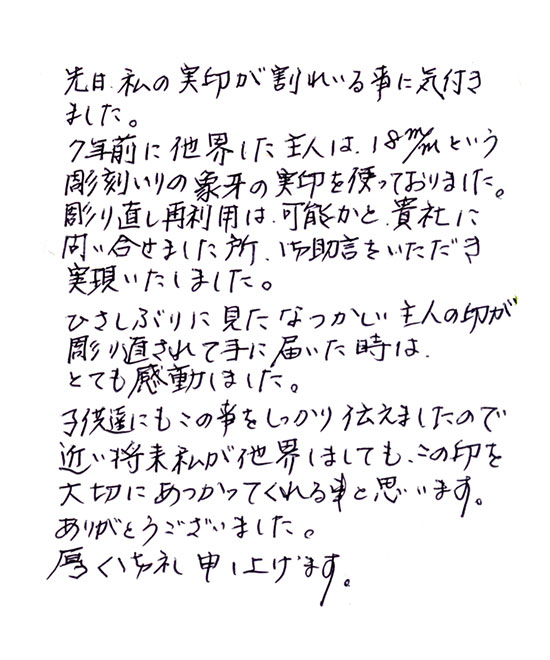 先日、私の実印が割れいる事に気付き
ました。
7年前に他界した主人は、18m/mという
彫刻いりの象牙の実印を使っておりました。
彫り直し再利用は、可能かと、貴社に
問い合せました所、御助言をいただき
実現いたしました。
ひさしぶりに見たなつかしい主人の印が
彫り直されて手に届いた時は、
とても感動しました。
子供達にもこの事をしっかり伝えましたので
近い将来私が他界しましても、この印を
大切にあつかってくれる事と思います。
ありがとうございました。
厚く御礼申し上げます。